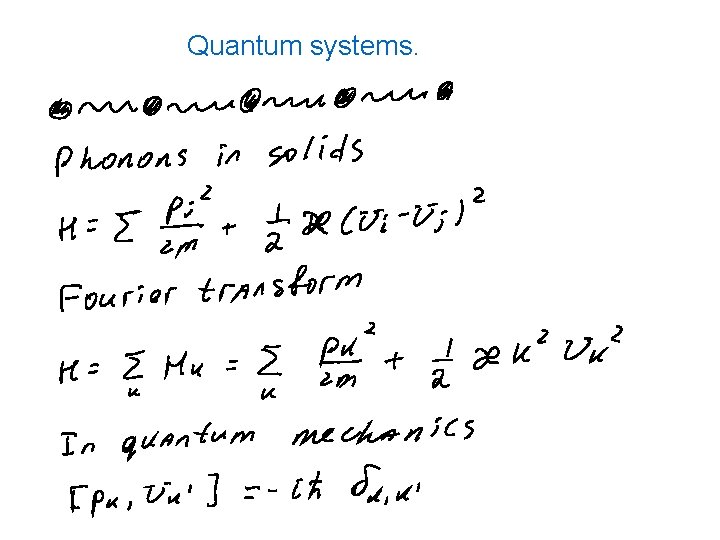 Quantum systems.
Phonons in solids
H = Σ p_i²/2m + 1/2 æ (U_i - U_j)²
Fourier transform
H = Σ_k H_k = Σ_k p_k²/2m + 1/2 æ k² U_k²
In quantum mechanics
[p_k, U_k'] = -iħ δ_k,k'